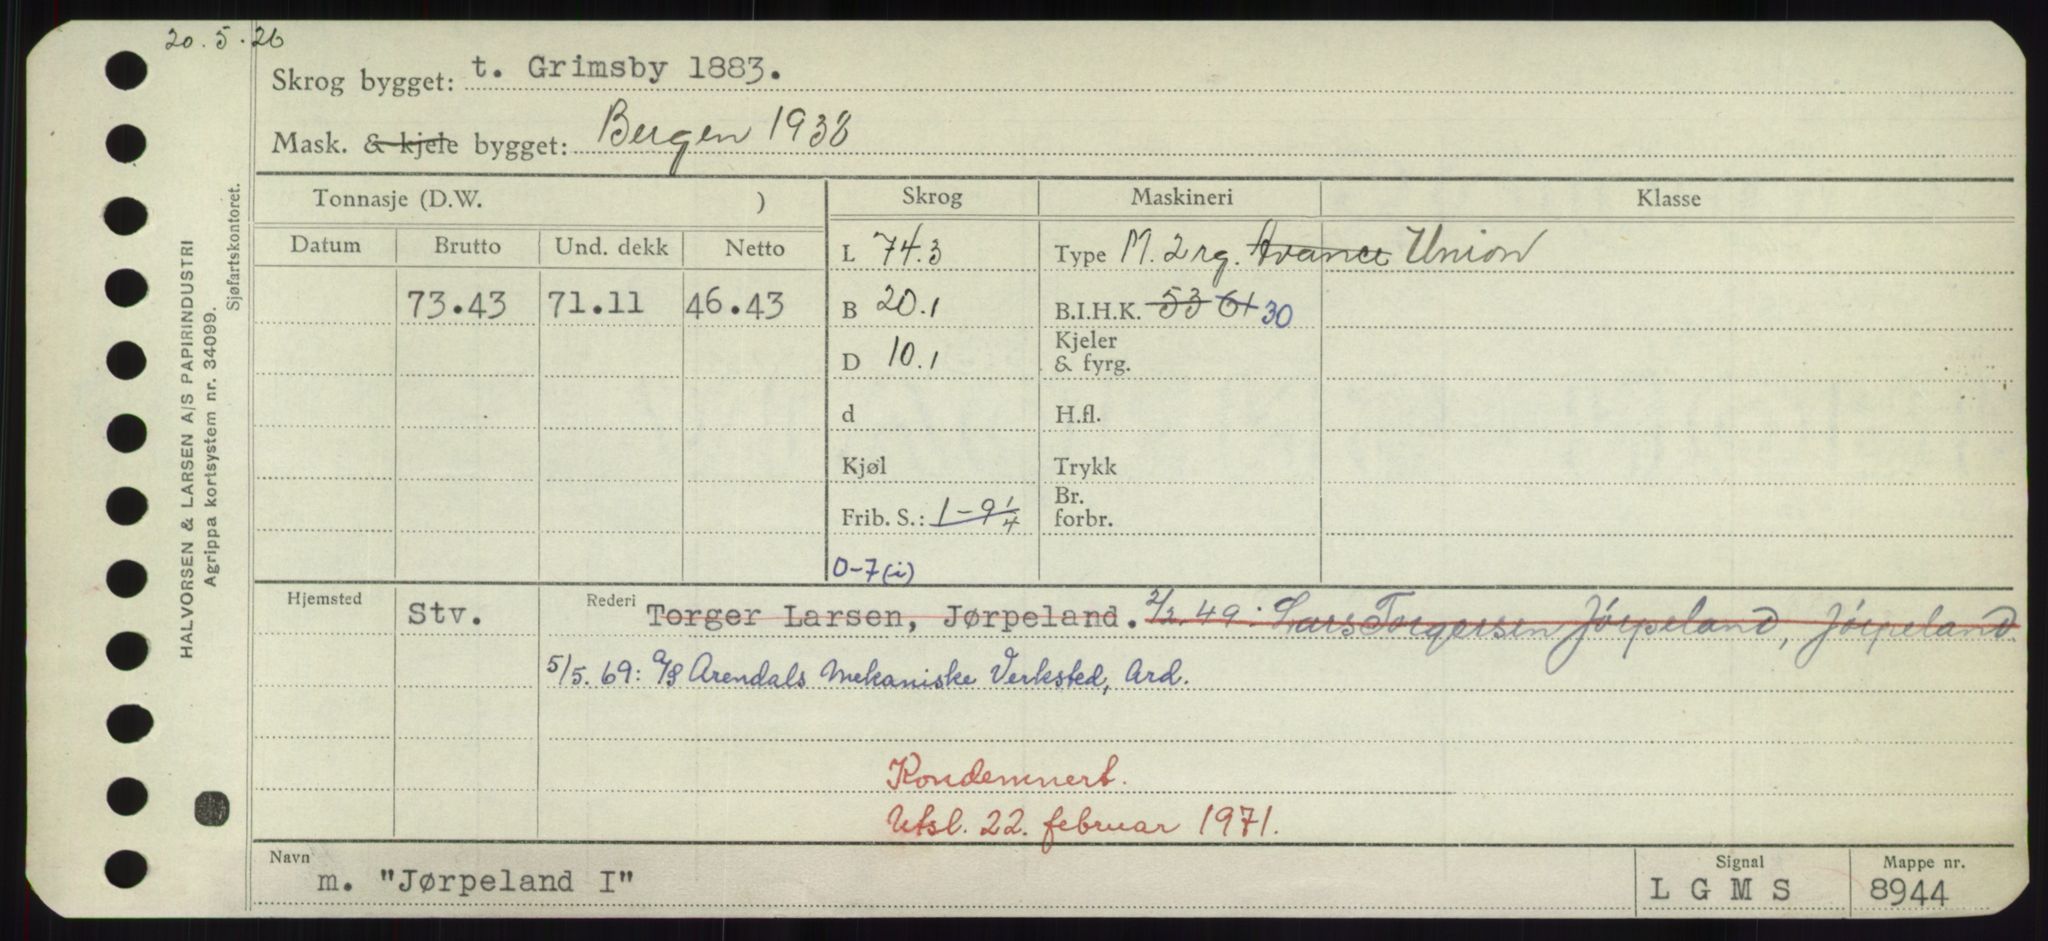 20.5.26
Skrog bygget: t. Grimsby 1883.
Mask. & kjele bygget: Bergen 1938
HALVORSEN & LARSEN A/S PAPIRINDUSTRI
Agrippa kortsystem nr. 34099.
Sjøfartskontoret.
Tonnasje (D.W. ) Skrog Maskineri Klasse
Datum Brutto Und. dekk Netto L 74.3 Type M. 2 rg. Avance Union
73.43 71.11 46.43 B 20.1 B.I.H.K. 53 61 30
D 10.1 Kjeler & fyrg.
d H.fl.
Kjøl Trykk
Frib. S.: 1-9 1/4 Br. forbr.
0-7(i)
Hjemsted Stv. Rederi Torger Larsen, Jørpeland. 2/2.49: Lars Torgersen Jørpeland, Jørpeland.
5/5.69: A/S Arendals Mekaniske Verksted, Ard.
Kondemnert.
Utsl. 22. februar 1971.
Navn m. "Jørpeland I" Signal LGMS Mappe nr. 8944